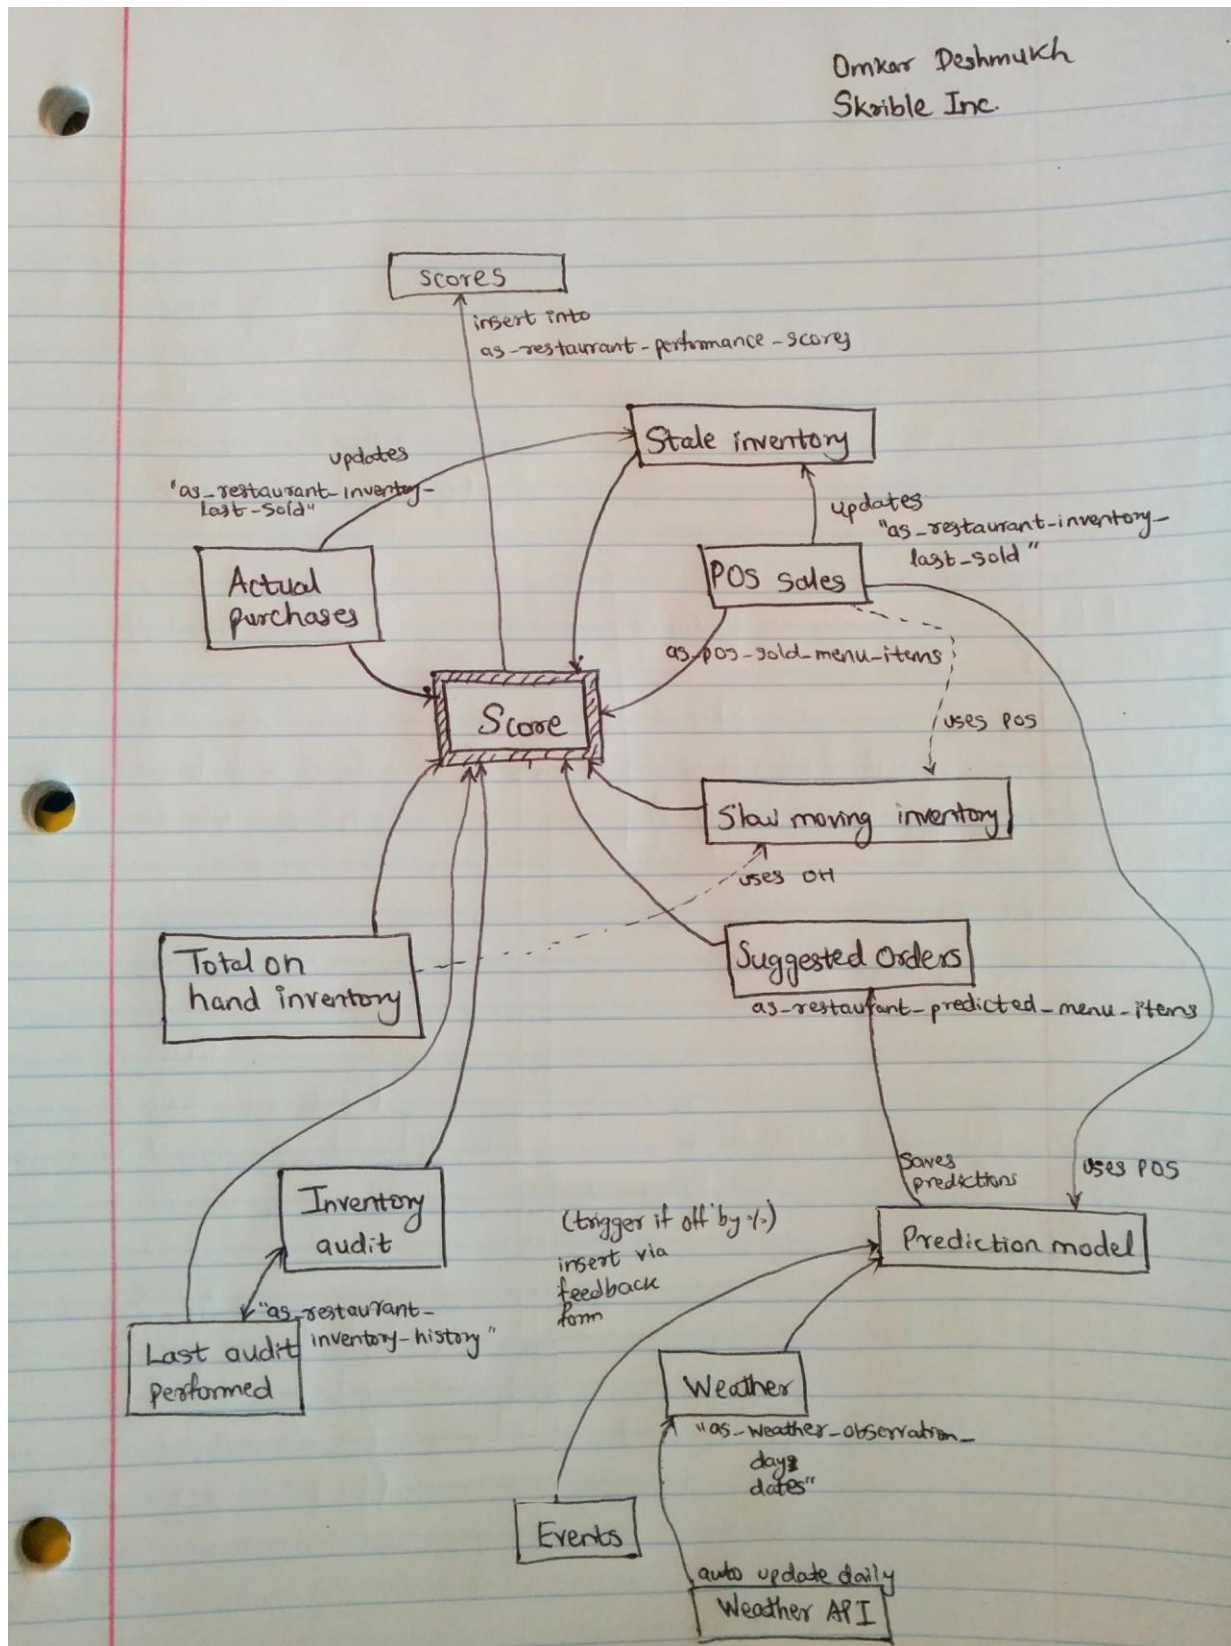 Omkar Deshmukh
Skrible Inc.
scores
insert into
as-restaurant-performance-scores
Stale inventory
updates
"as_restaurant-inventory-
last-sold"
updates
"as_restaurant-inventory-
last-sold"
Actual
purchases
POS sales
as-pos-sold-menu-items
Score
uses POS
Slow moving inventory
uses OH
Total on
hand inventory
Suggested Orders
as-restaurant-predicted-menu-items
Saves
predictions
uses POS
Inventory
audit
(trigger if off by %)
insert via
feedback
form
Prediction model
"as_restaurant-
inventory-history"
Last audit
performed
Weather
"as_weather-observation_
days
dates"
Events
auto update daily
Weather API